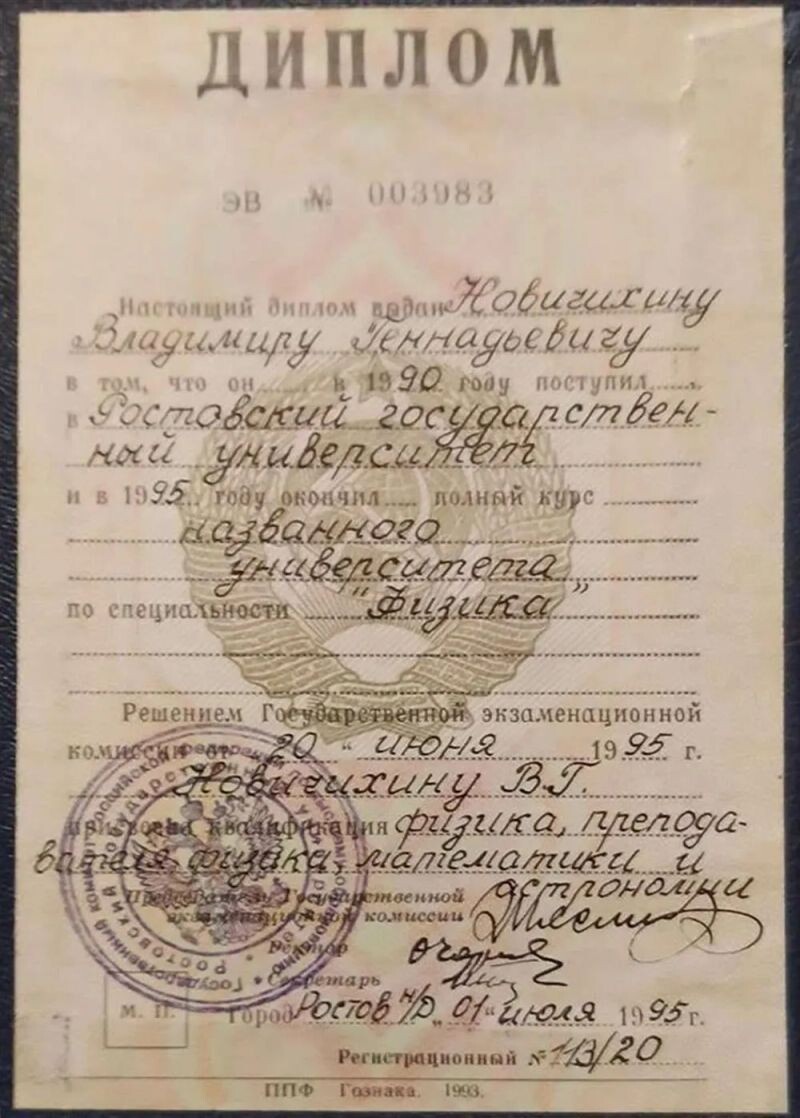 ДИПЛОМ
ЭВ № 003983
Настоящий диплом выдан Новичихину
Владимиру Геннадьевичу
в том, что он в 1990 году поступил
в Ростовский государствен-
ный университет
и в 1995 году окончил полный курс
названного
университета
по специальности "Физика"
Решением Государственной экзаменационной
комиссии от 20 " июня 1995 г.
Новичихину В.Г.
присвоена квалификация физика, препода-
вателя физики, математики и
астрономии
Председатель Государственной
экзаменационной комиссии
Ректор
Секретарь
М. П.
Город Ростов н/Д "01" июля 1995 г.
Регистрационный № 113/20
ППФ Гознака. 1993.